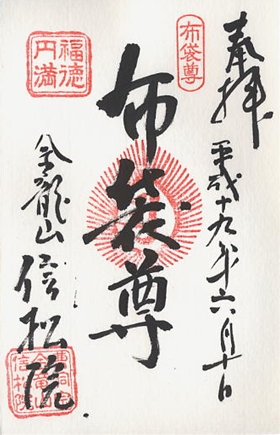 奉拝
平成十九年六月十日
布袋尊
布袋尊
福徳
円満
金龍山
信松院